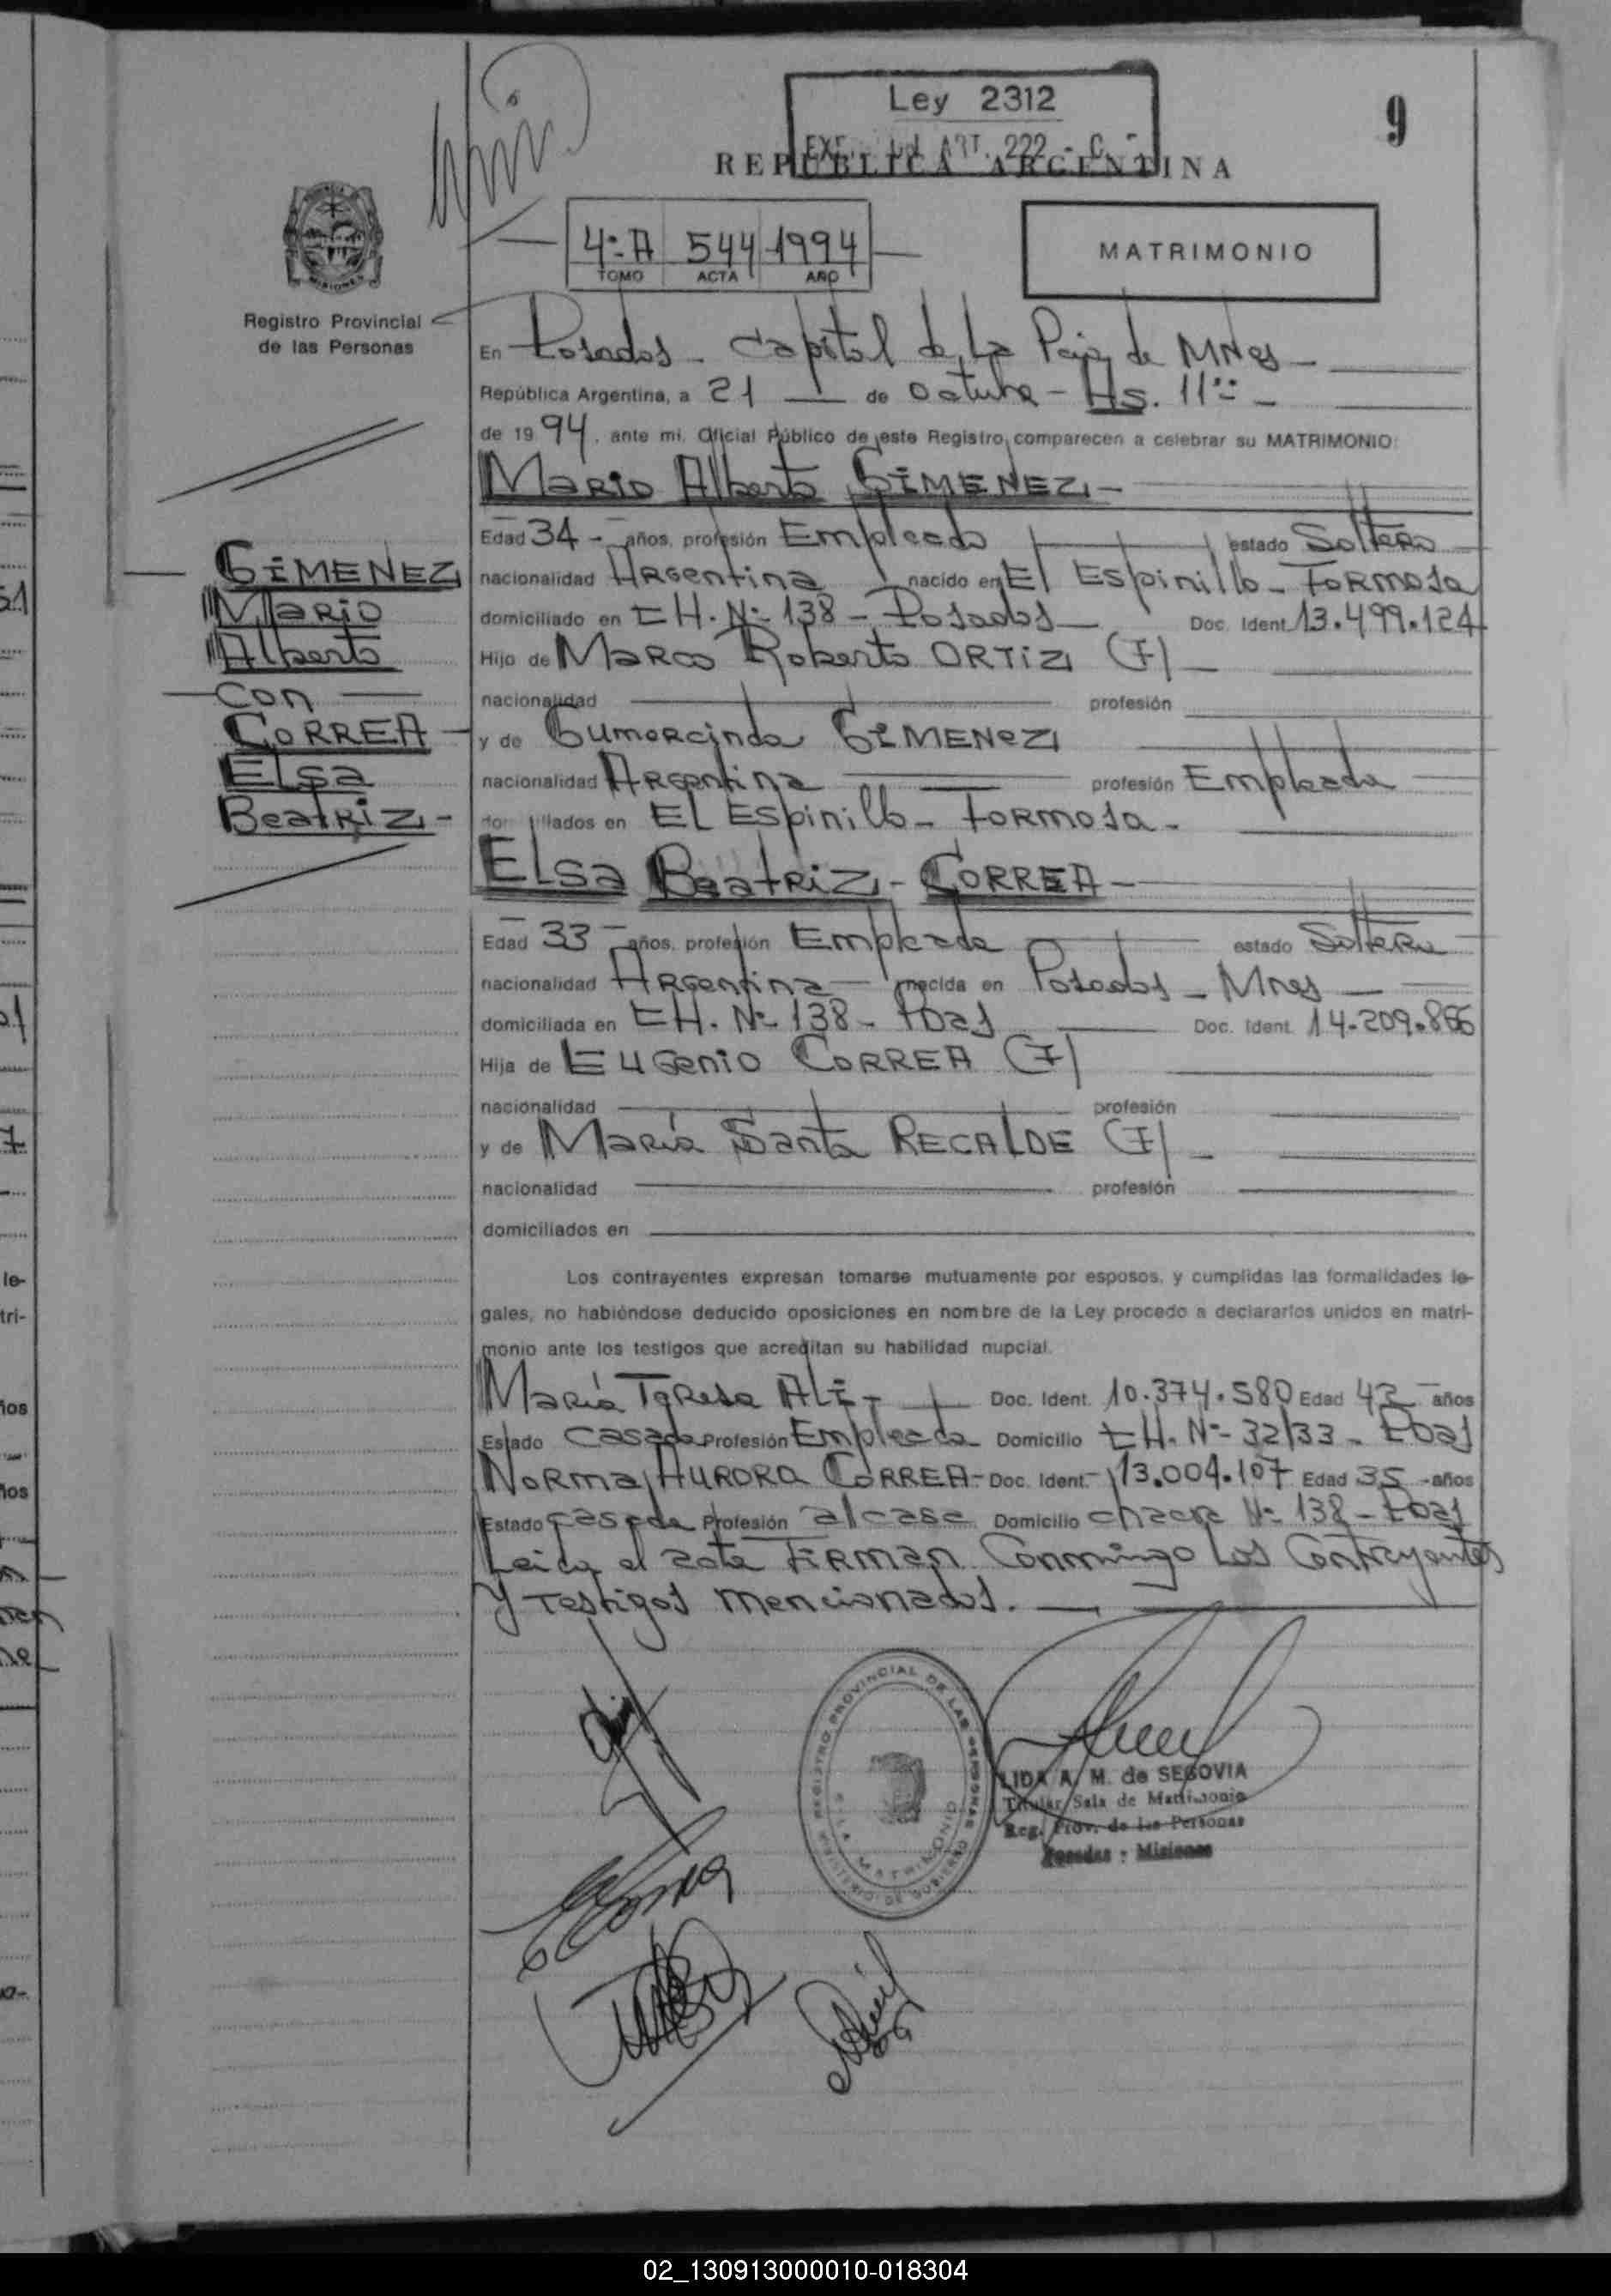 Ley 2312
ART. 222
9
REPUBLICA ARGENTINA
4º A 544 1994
TOMO ACTA AÑO
MATRIMONIO
Registro Provincial
de las Personas
En Posadas - Capital de La Pcia de MNes -
República Argentina, a 21 de Octubre - Hs. 11
de 1994, ante mi, Oficial Público de este Registro, comparecen a celebrar su MATRIMONIO:
Mario Alberto GIMENEZ -
Edad 34 - años, profesión Empleado estado Soltero
nacionalidad Argentina nacido en El Espinillo - Formosa
domiciliado en CH. Nº 138 - Posadas Doc. Ident. 13.499.124
Hijo de Marco Roberto ORTIZ (F) -
nacionalidad profesión
y de Gumercinda GIMENEZ
nacionalidad Argentina profesión Empleada
domiciliados en EL Espinillo - Formosa -
GIMENEZ
Mario
Alberto
Con
CORREA
Elsa
Beatriz -
Elsa Beatriz - CORREA -
Edad 33 - años, profesión Empleada estado Soltera
nacionalidad Argentina - nacida en Posadas - Mnes
domiciliada en CH. Nº 138 - Pdas Doc. Ident. 14.209.866
Hija de Eugenio CORREA (F)
nacionalidad profesión
y de María Santa RECALDE (F) -
nacionalidad profesión
domiciliados en
Los contrayentes expresan tomarse mutuamente por esposos, y cumplidas las formalidades le-
gales, no habiéndose deducido oposiciones en nombre de la Ley procedo a declararlos unidos en matri-
monio ante los testigos que acreditan su habilidad nupcial.
María Teresa ALÍ - Doc. Ident. 10.374.580 Edad 42 años
Estado Casada Profesión Empleada Domicilio CH. Nº 32/33 - Pdas
Norma AURORA CORREA - Doc. Ident. 13.004.107 Edad 35 - años
Estado Casada Profesión al casa Domicilio chacra Nº 138 - Pdas
Leida el acta Firman Conmingo Los Contrayentes
y Testigos mencionados.
REGISTRO PROVINCIAL DE LAS PERSONAS
SALA MATRIMONIO
MINISTERIO DE GOBIERNO
LIDA A. M. de SEGOVIA
Titular Sala de Matrimonio
Reg. Prov. de las Personas
Posadas - Misiones
02_130913000010-018304